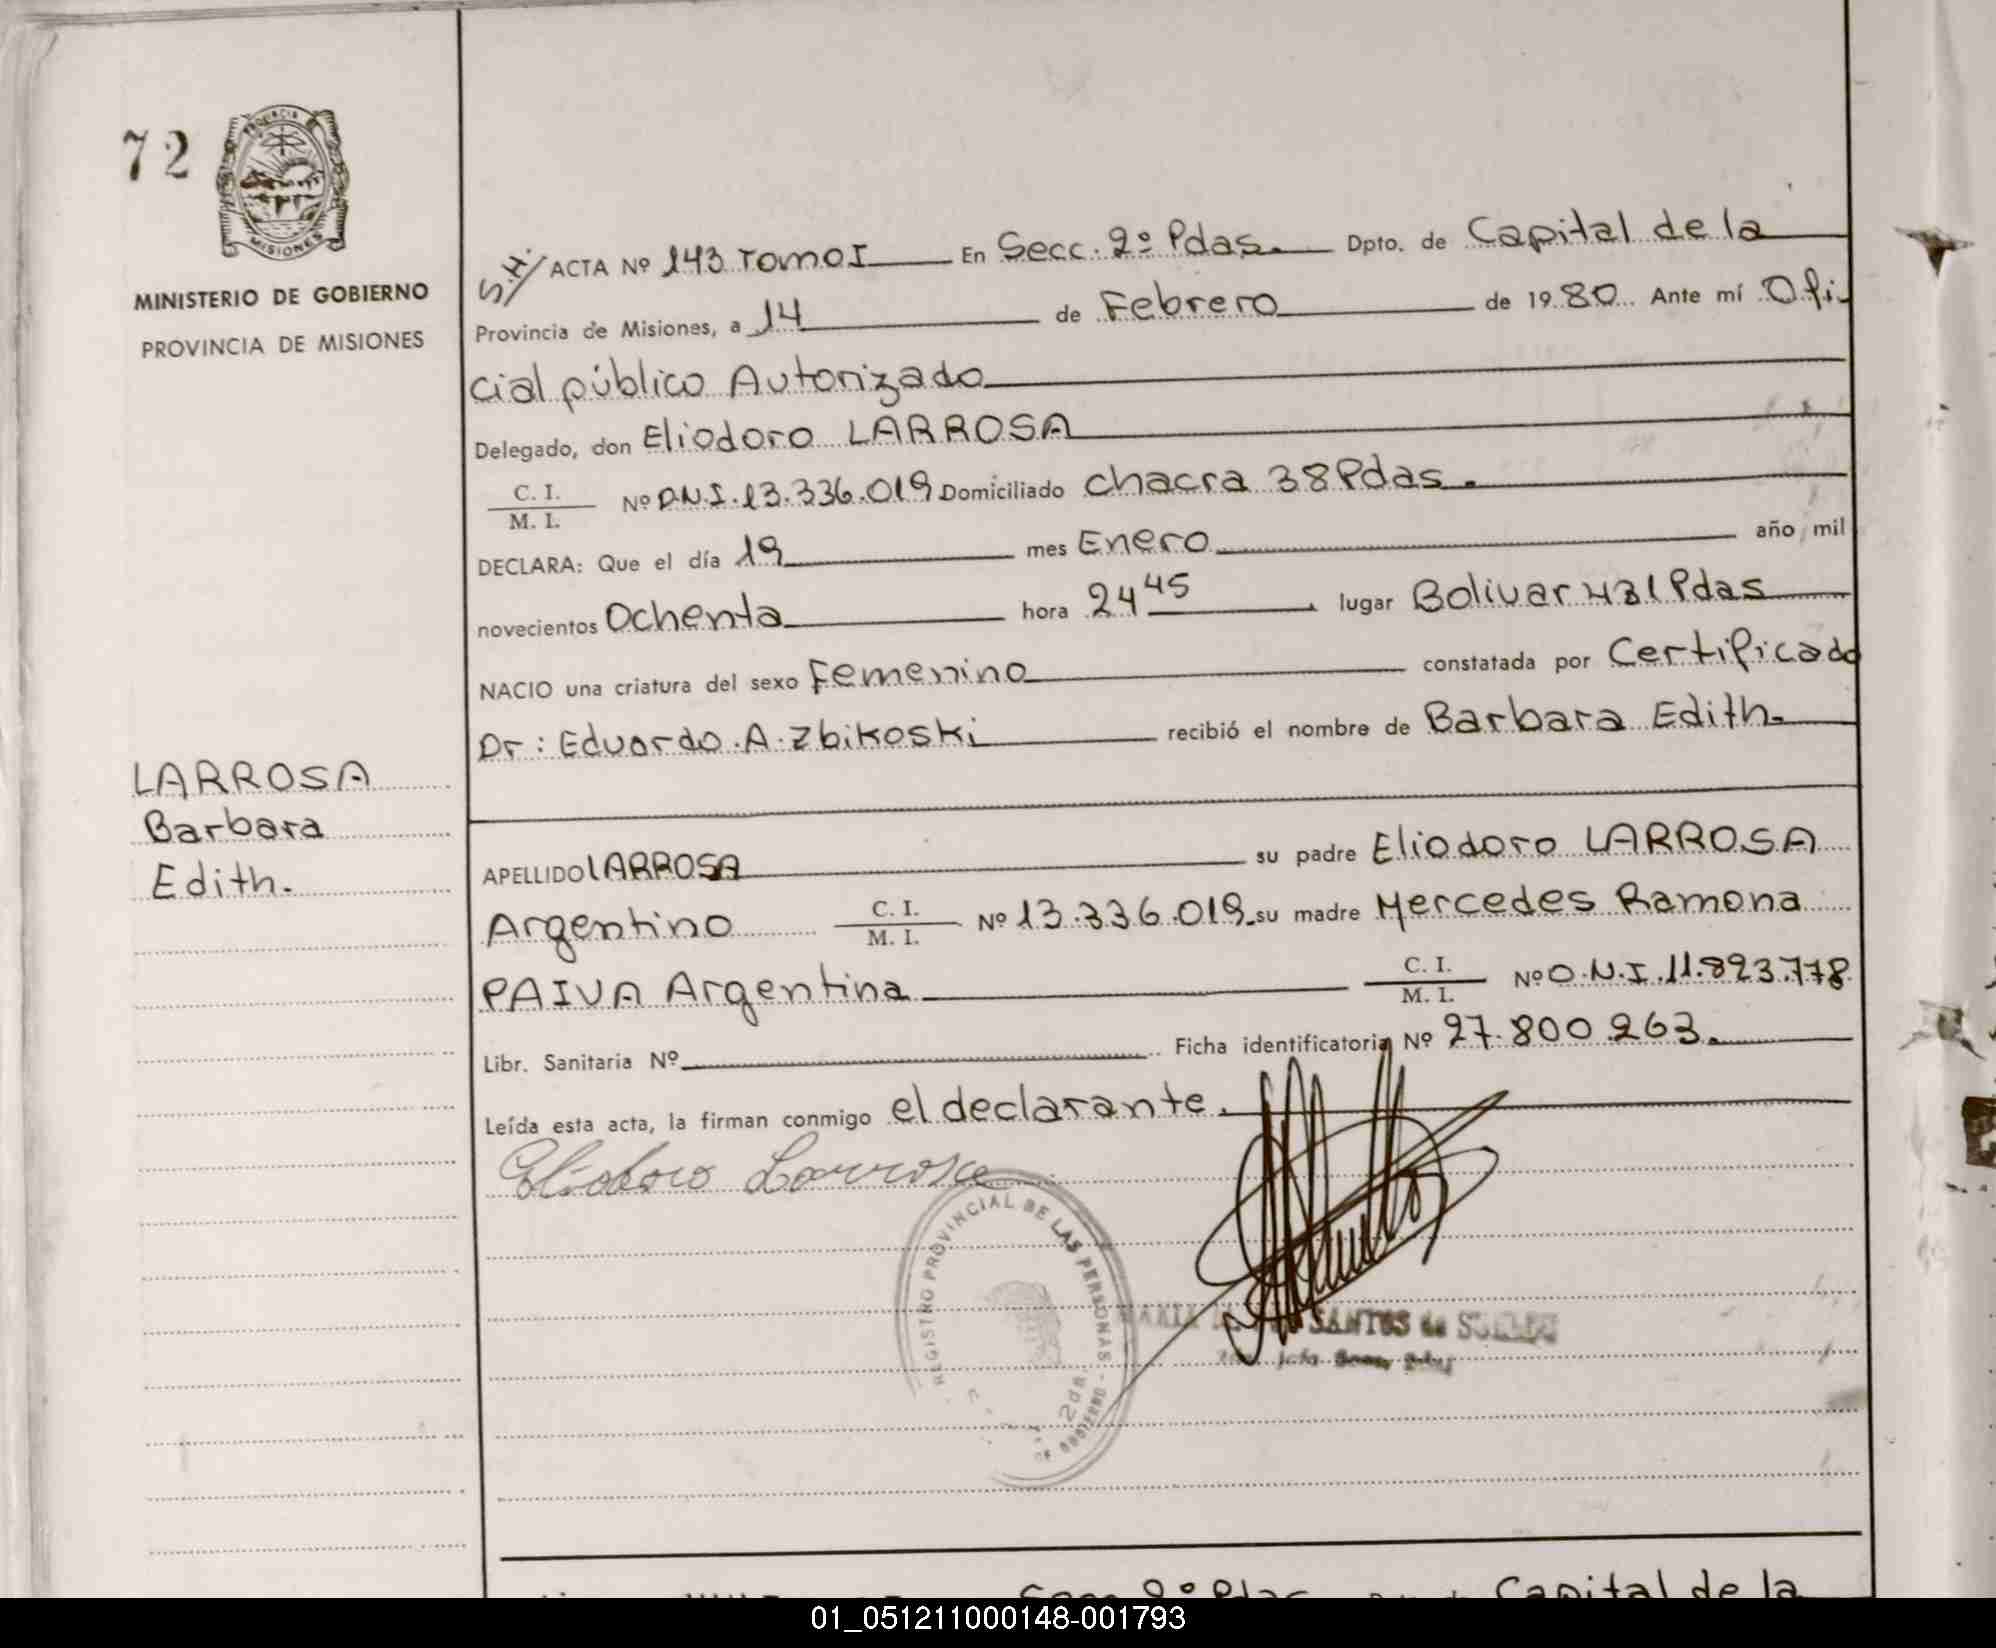 72
PROVINCIA
MISIONES
MINISTERIO DE GOBIERNO
PROVINCIA DE MISIONES
S.H./ ACTA Nº 143 Tomo I En Secc. 2º Pdas. Dpto. de Capital de la
Provincia de Misiones, a 14 de Febrero de 1980 Ante mí Ofi
cial público Autorizado
Delegado, don Eliodoro LARROSA
C. I.
M. I.
Nº D.N.I. 13.336.019 Domiciliado chacra 38 Pdas.
DECLARA: Que el día 19 mes Enero año mil
novecientos Ochenta hora 24 45 lugar Bolivar 431 Pdas
NACIO una criatura del sexo Femenino constatada por Certificado
Dr: Eduardo.A.Zbikoski recibió el nombre de Barbara Edith.
LARROSA
Barbara
Edith.
APELLIDO LARROSA su padre Eliodoro LARROSA
Argentino C. I. M. I. Nº 13.336.019 su madre Mercedes Ramona
PAIVA Argentina C. I. M. I. Nº D.N.I. 11.893.778
Libr. Sanitaria Nº Ficha identificatoria Nº 27.800.263.
Leída esta acta, la firman conmigo el declarante.
Eliodoro Larrosa
REGISTRO PROVINCIAL DE LAS PERSONAS
GOBIERNO
2da.
SANTOS de
Secc. 2º Pdas Capital de la
01_051211000148-001793